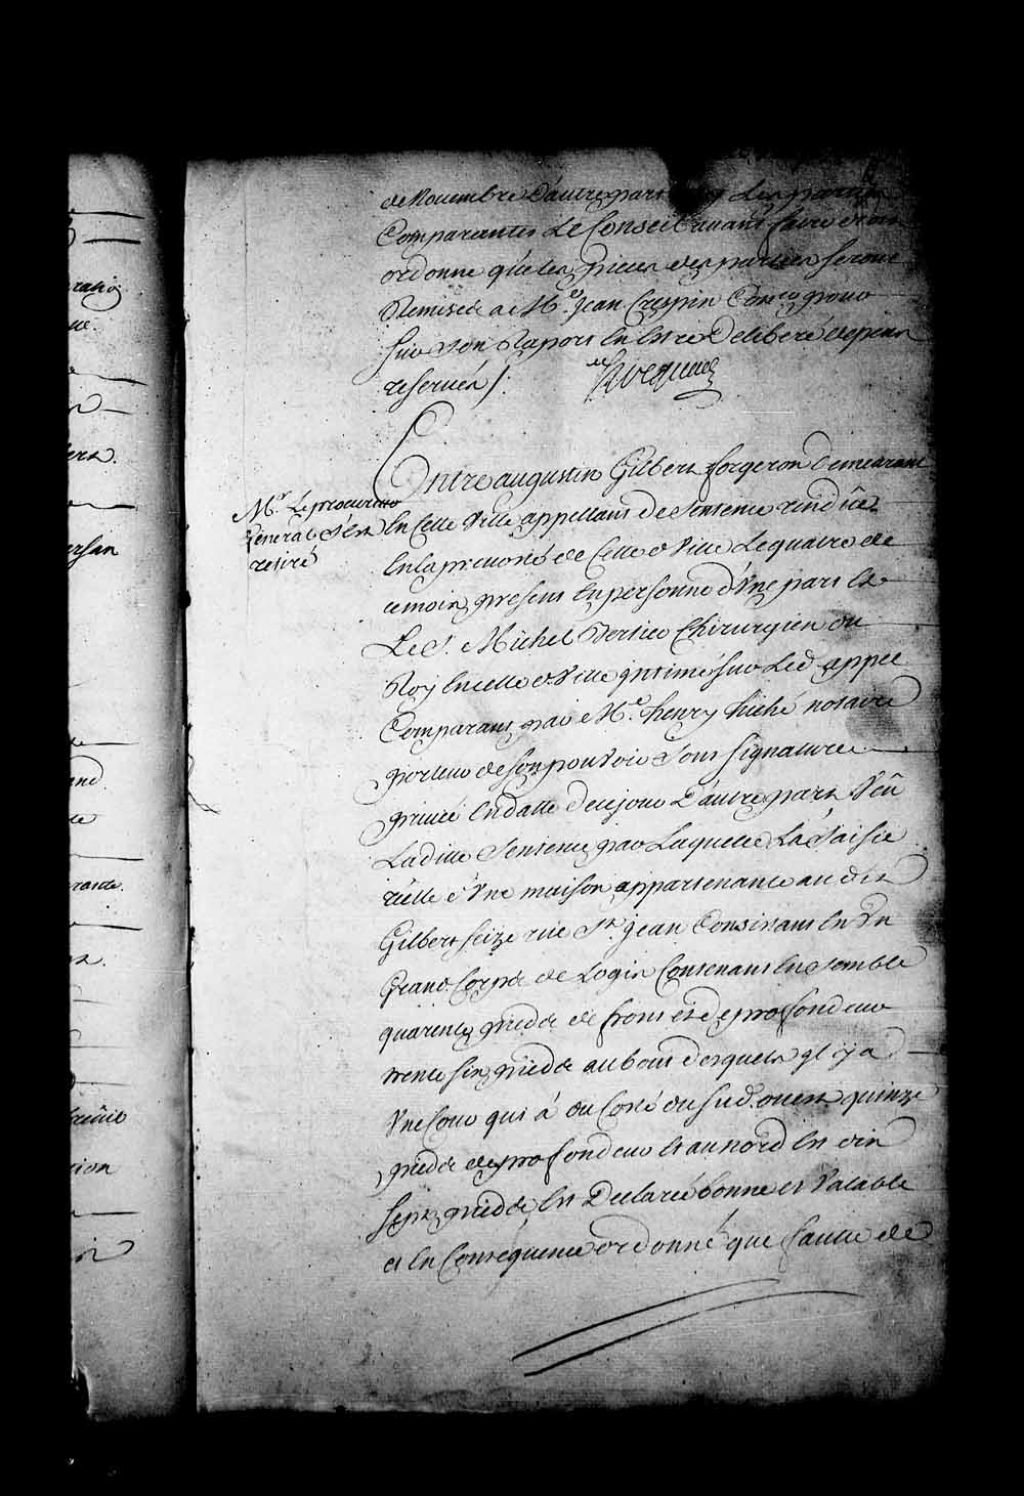 de Nouembre D'autre part Les parties
Comparantes Le Conseil auant faire droit
ordonne que les pieces des parties seront
Remises a Me. Jean Crespin Conser pour
sur son Raport En Estre Deliberé depens
reserués /.
hocquart
Entre augustin Gilbert forgeron demeurant
En Cette Ville appellant de Sentence rendüe
En la preuosté de Cette Ville Le quatre de
ce mois present En personne d'Vne part Et
Le Sr. Michel Bertier Chirurgien du
Roy En cette Ville jntimé sur Led. appel
Comparant par Me. henry hiché notaire
porteur de son pouuoir sous signature
priuée En datte de ce jour D'autre part Veû
Ladite Sentence par Laquelle La Saisie
réelle d'Vne maison appartenante au dit
Gilbert seize rüe St. jean Consistant En Vn
Grand Corps de Logis Contenant Ensemble
quarente pieds de front et de profondeur
trente six pieds au bout desquels jl y a
Vne Cour qui a du Costé du sud ouest quinze
pieds de profondeur Et au nord Est vin
sept pieds Est Declarée bonne et Valable
et En Consequence ordonné que faute de
Mr. Le procureur
General s'est
retiré
ersan
rante.